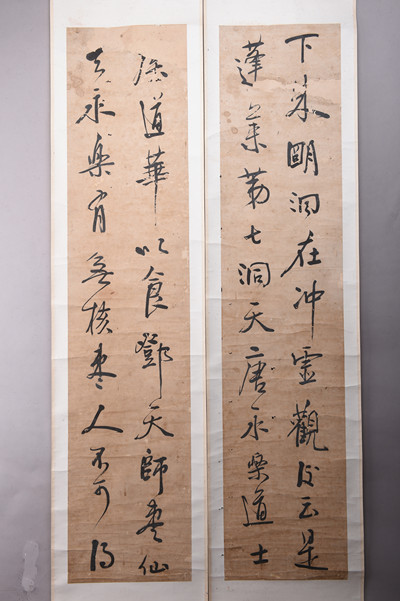 下朱明洞在冲虛觀後云是
蓬萊第七洞天唐永樂道士
侯道華以食鄧天師棗仙
去永樂有無核棗人不可得